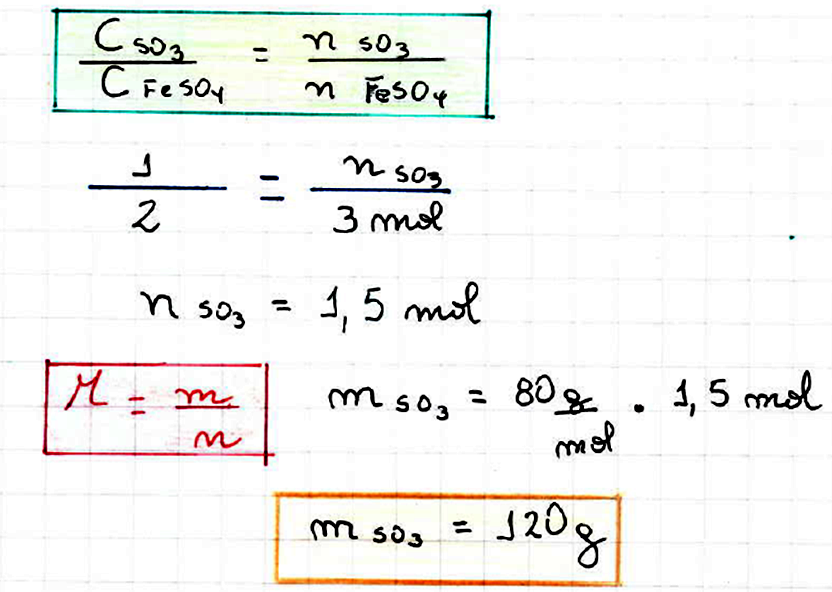 C SO₃ / C FeSO₄ = n SO₃ / n FeSO₄
1 / 2 = n SO₃ / 3 mol
n SO₃ = 1,5 mol
M = m / n
m SO₃ = 80 g/mol · 1,5 mol
m SO₃ = 120 g